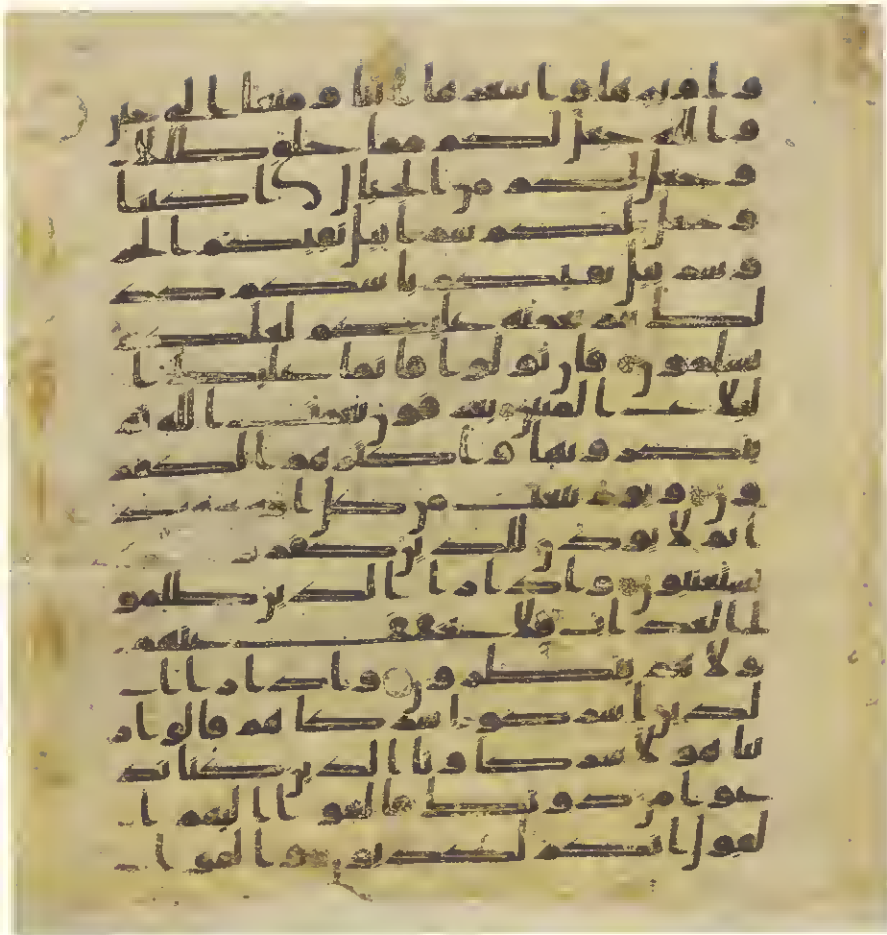 و اوبرها و اشعرها اثثا و متعا الى حين
و الله جعل لكم مما خلق ظللا
و جعل لكم من الجبال اكننا
و جعل لكم سرابيل تقيكم الحر
و سربيل تقيكم باسكم كذ
لك يتم نعمته عليكم لعلكم
تسلمون فان تولوا فانما عليك ا
لبلاغ المبين يعرفون نعمت الله ثم
ينكرونها و اكثرهم الكفر
ون و يوم نبعث من كل امة شهيدا
ثم لا يوذن للذين كفرو
يستعتبون و اذا را الذين ظلمو
ا العذاب فلا يخفف عنهم
ولا هم ينظرون و اذا را ا
لذين اشركوا شركاهم قالوا ر
بنا هولا شركاونا الذين كنا ند
عوا من دونك فالقوا اليهم ا
لقول انكم لكذبون و القوا ا